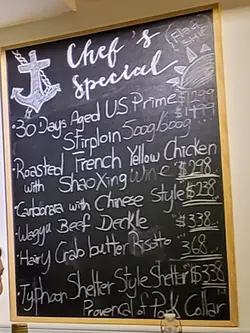 Chef's
Special
30 Days Aged US Prime
Stirploin 500g/600g
Roasted French Yellow Chicken
with ShaoXing Wine $298
Carbonara with Chinese Style $238
Wagyu Beef Deckle $338
Hairy Crab butter Risotto 368
Typhoon Shelter Style Shelter $338
Provencal of Pork Collar